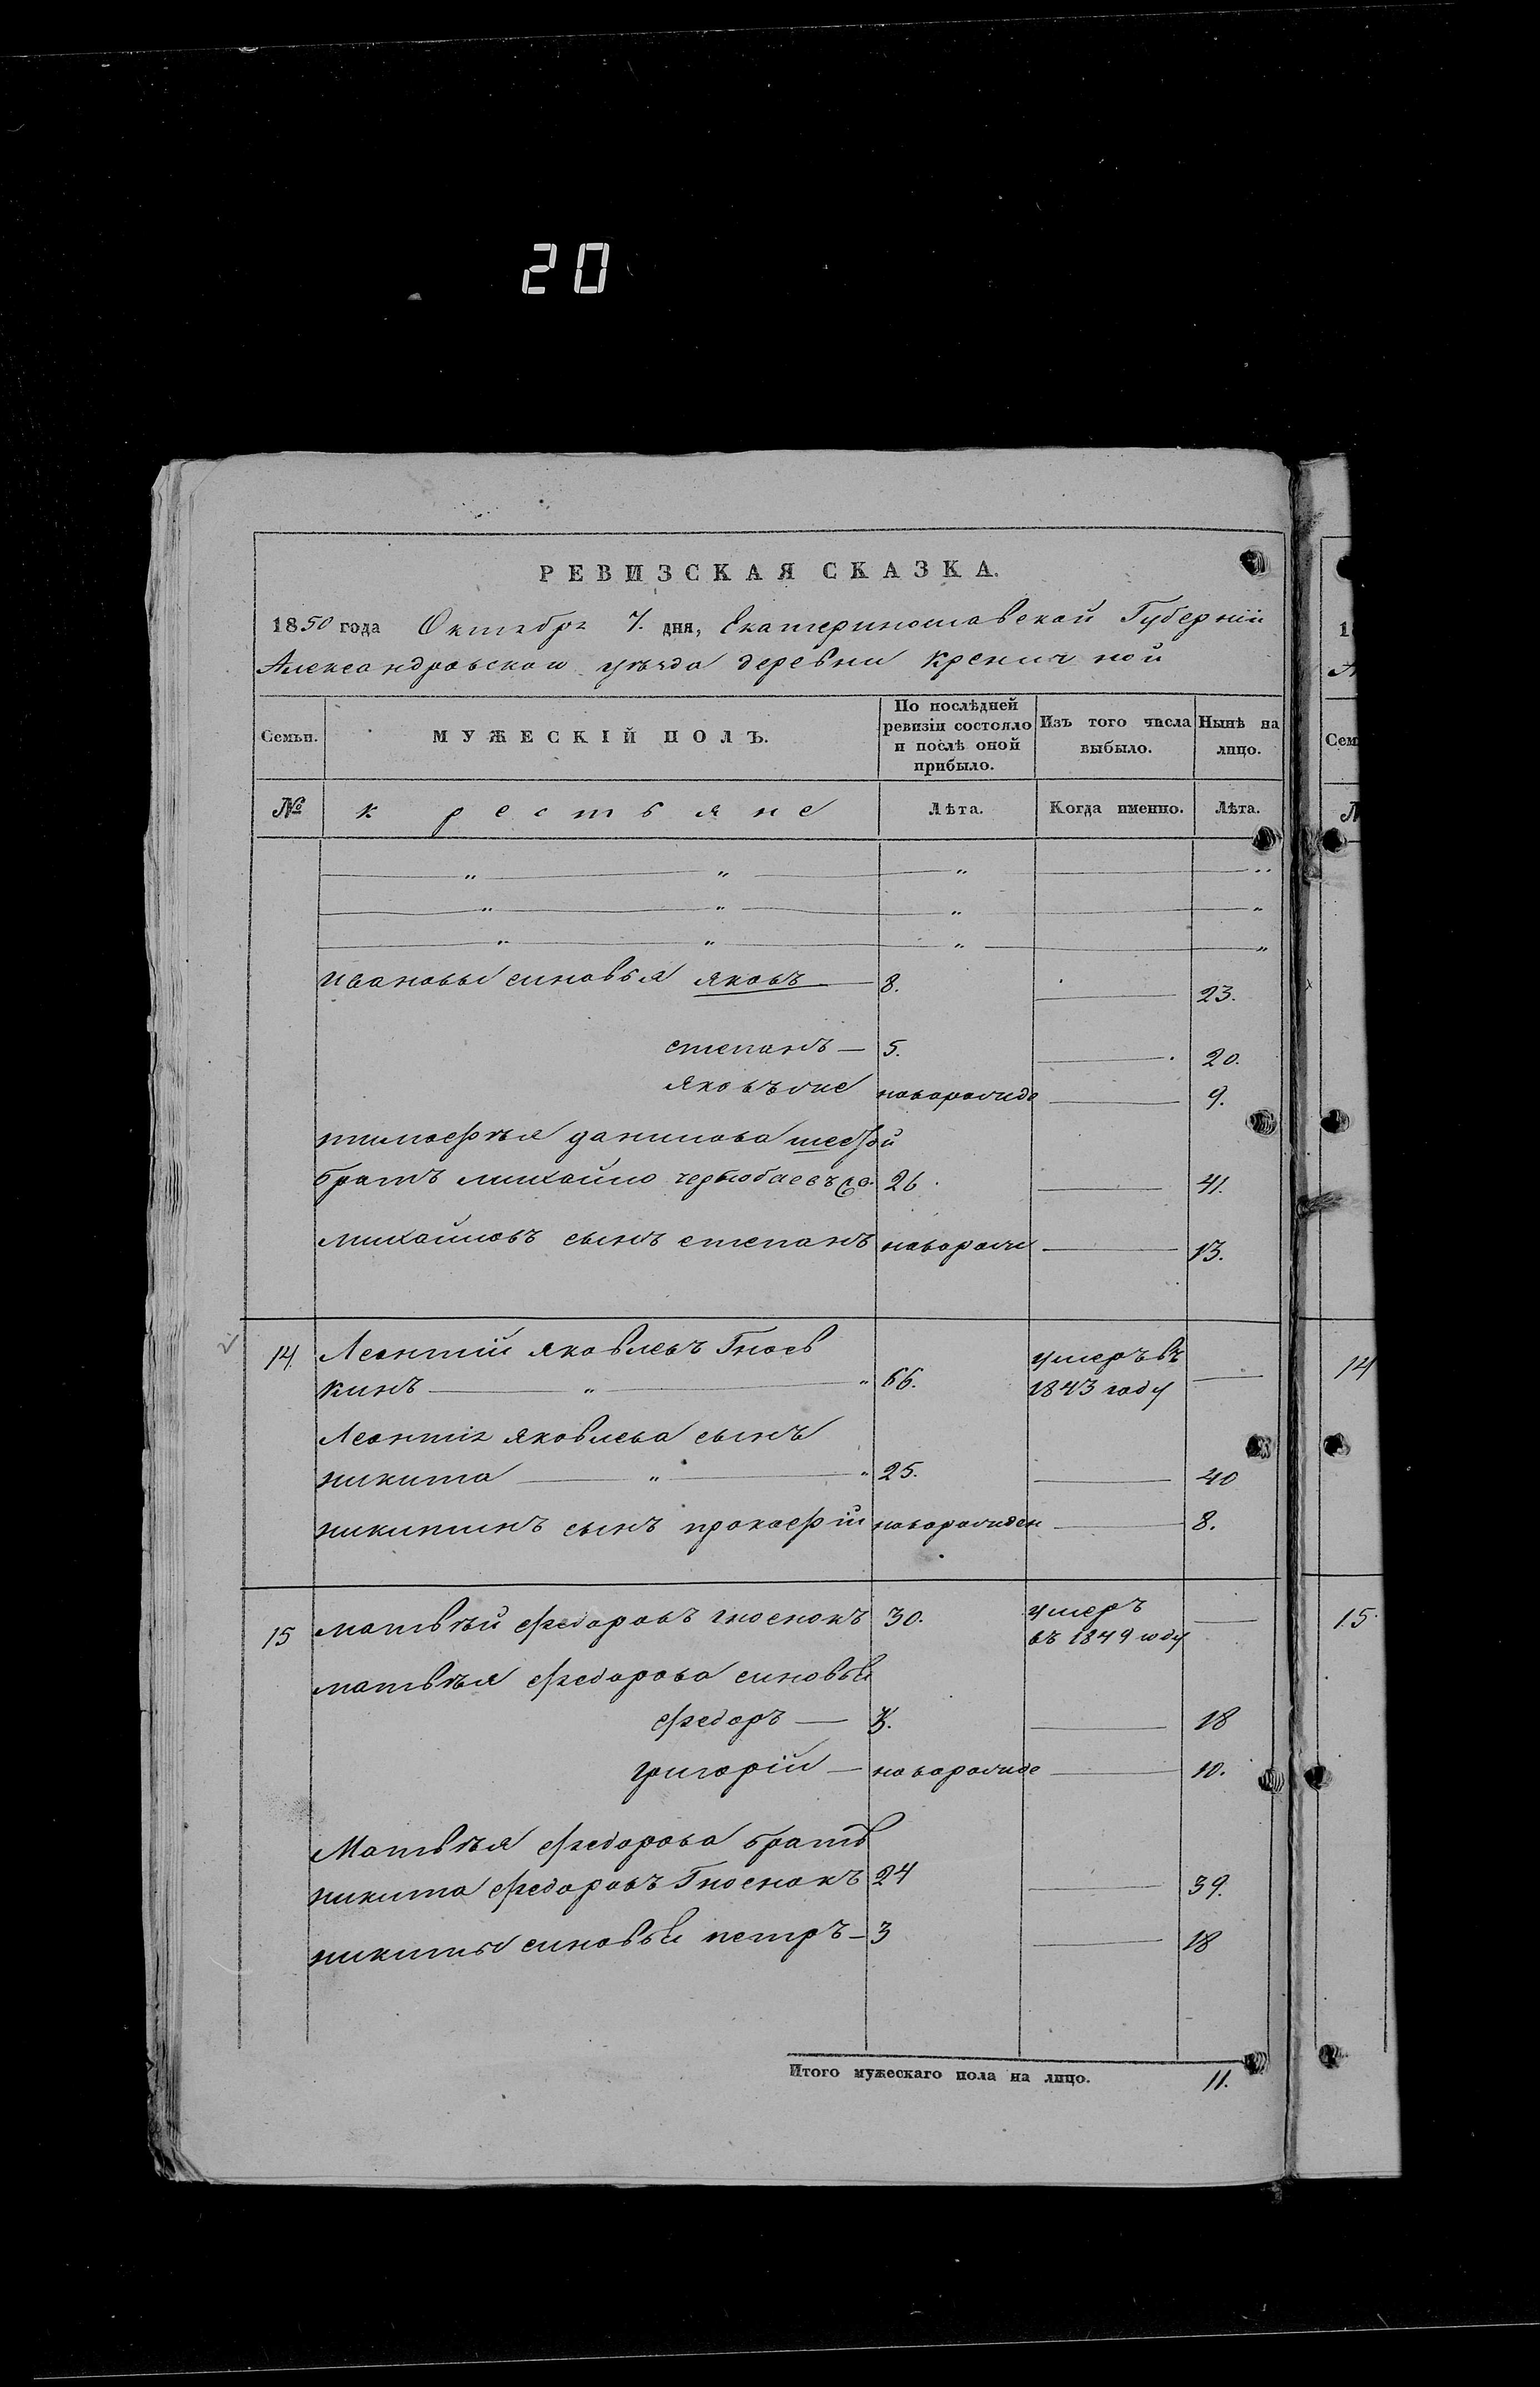 20
РЕВИЗСКАЯ СКАЗКА.
1850 года Октября 7. дня, Екатеринославской Губерніи
Александровскаго уѣзда деревни Кременчуной
Семьи. МУЖЕСКІЙ ПОЛЪ. По послѣдней ревизіи состояло и послѣ оной прибыло. Изъ того числа выбыло. Нынѣ на лицо.
№ крестьяне Лѣта. Когда именно. Лѣта.
Ивановы синовья яковъ 8. 23.
степанъ 5. 20.
яковъ 9.
тимофѣя данилова
братъ михайло 26 41.
михайловъ сынъ степанъ новорожд 13.
14. Леонтій яковлевъ Гноев
кинъ 66. умеръ въ 1843 году
Леонтія яковлева сынъ
никита 25. 40
никитинъ сынъ прокофій новорожден 8.
15 матвѣй федоровъ гноенокъ 30. умеръ въ 1849 году
матвѣя федорова синовьи
федоръ 3. 18
григорій новорожде 10.
Матвѣя федорова братъ
никита федоровъ Гноенокъ 24 39.
никиты синовьи петръ 3 18
Итого мужескаго пола на лицо. 11.
14
15.